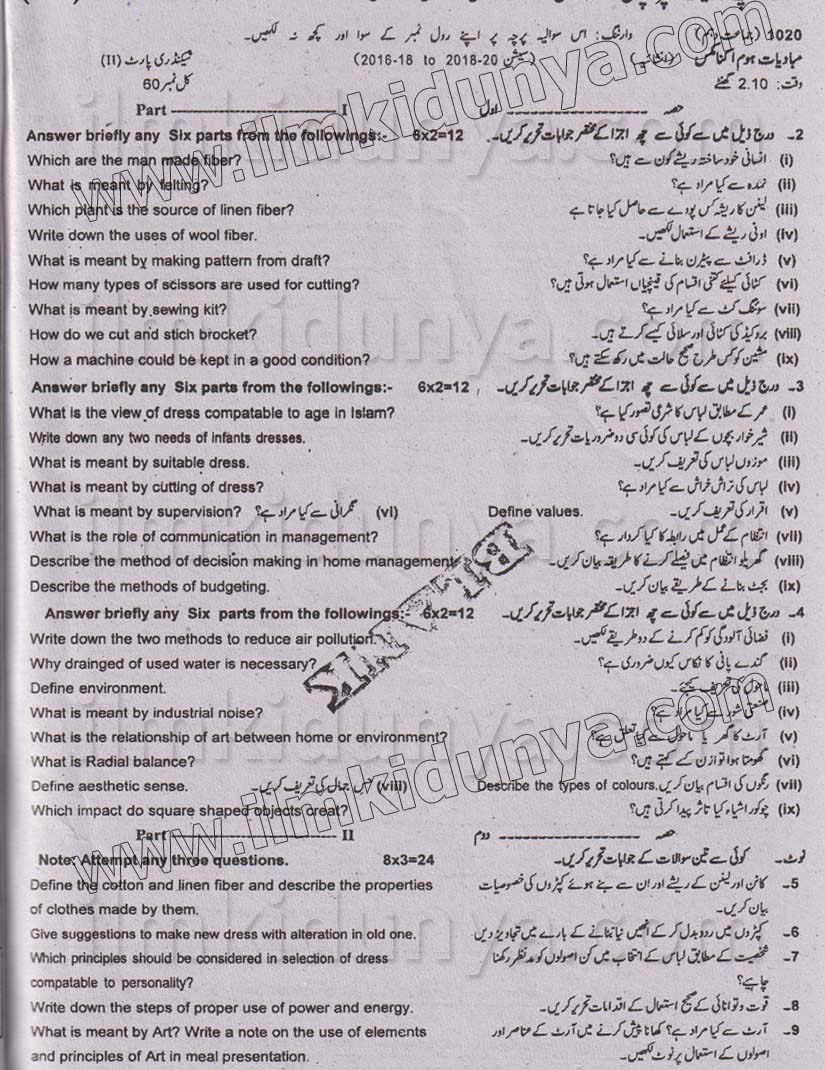 1020 (جماعت دہم) وارننگ: اس سوالیہ پرچہ پر اپنے رول نمبر کے سوا اور کچھ نہ لکھیں۔
مبادیات ہوم اکنامکس (انشائیہ) (سیشن 2016-18 to 2018-20) سیکنڈری پارٹ (II)
وقت: 2.10 گھنٹے کل نمبر 60
Part ---------------- I حصہ ---------------- اول
Answer briefly any Six parts from the followings:- 6x2=12 2۔ درج ذیل میں سے کوئی سے چھ اجزا کے مختصر جوابات تحریر کریں۔
Which are the man made fiber? (i) انسانی خود ساختہ ریشے کون سے ہیں؟
What is meant by felting? (ii) نمدہ سے کیا مراد ہے؟
Which plant is the source of linen fiber? (iii) لینن کا ریشہ کس پودے سے حاصل کیا جاتا ہے
Write down the uses of wool fiber. (iv) اونی ریشے کے استعمال لکھیں۔
What is meant by making pattern from draft? (v) ڈرافٹ سے پیٹرن بنانے سے کیا مراد ہے؟
How many types of scissors are used for cutting? (vi) کٹائی کیلئے کتنی اقسام کی قینچیاں استعمال ہوتی ہیں؟
What is meant by sewing kit? (vii) سوئنگ کٹ سے کیا مراد ہے؟
How do we cut and stich brocket? (viii) بروکیڈ کی کٹائی اور سلائی کیسے کرتے ہیں۔
How a machine could be kept in a good condition? (ix) مشین کو کس طرح صحیح حالت میں رکھ سکتے ہیں؟
Answer briefly any Six parts from the followings:- 6x2=12 3۔ درج ذیل میں سے کوئی سے چھ اجزا کے مختصر جوابات تحریر کریں۔
What is the view of dress compatable to age in Islam? (i) عمر کے مطابق لباس کا شرعی تصور کیا ہے؟
Write down any two needs of infants dresses. (ii) شیر خوار بچوں کے لباس کی کوئی سی دو ضروریات تحریر کریں۔
What is meant by suitable dress. (iii) موزوں لباس کی تعریف کریں۔
What is meant by cutting of dress? (iv) لباس کی تراش خراش سے کیا مراد ہے؟
What is meant by supervision? نگرانی سے کیا مراد ہے؟ (vi) Define values. (v) اقدار کی تعریف کریں۔
What is the role of communication in management? (vii) انتظام کے عمل میں رابطہ کا کیا کردار ہے؟
Describe the method of decision making in home management. (viii) گھریلو انتظام میں فیصلے کرنے کا طریقہ بیان کریں۔
Describe the methods of budgeting. (ix) بجٹ بنانے کے طریقے بیان کریں۔
Answer briefly any Six parts from the followings:- 6x2=12 4۔ درج ذیل میں سے کوئی سے چھ اجزا کے مختصر جوابات تحریر کریں۔
Write down the two methods to reduce air pollution. (i) فضائی آلودگی کو کم کرنے کے دو طریقے لکھیں۔
Why drainged of used water is necessary? (ii) گندے پانی کا نکاس کیوں ضروری ہے؟
Define environment. (iii) ماحول کی تعریف کیجئے۔
What is meant by industrial noise? (iv) صنعتی شور سے کیا مراد ہے؟
What is the relationship of art between home or environment? (v) آرٹ کا گھر یا ماحول سے کیا تعلق ہے؟
What is Radial balance? (vi) گھومتا ہوا توازن کے کہتے ہیں؟
Define aesthetic sense. حس جمال کی تعریف کریں۔ (viii) Describe the types of colours. رنگوں کی اقسام بیان کریں۔ (vii)
Which impact do square shaped objects creat? (ix) چوکور اشیاء کیا تاثر پیدا کرتی ہیں؟
Part ---------------- II حصہ ---------------- دوم
Note: Attempt any three questions. 8x3=24 نوٹ۔ کوئی سے تین سوالات کے جوابات تحریر کریں۔
Define the cotton and linen fiber and describe the properties 5۔ کاٹن اور لینن کے ریشے اور ان سے بنے ہوئے کپڑوں کی خصوصیات
of clothes made by them. بیان کریں۔
Give suggestions to make new dress with alteration in old one. 6۔ کپڑوں میں ردوبدل کر کے انھیں نیا بنانے کے بارے میں تجاویز دیں
Which principles should be considered in selection of dress 7۔ شخصیت کے مطابق لباس کے انتخاب میں کن اصولوں کو مدنظر رکھنا
compatable to personality? چاہیے؟
Write down the steps of proper use of power and energy. 8۔ قوت و توانائی کے صحیح استعمال کے اقدامات تحریر کریں۔
What is meant by Art? Write a note on the use of elements 9۔ آرٹ سے کیا مراد ہے؟ کھانا پیش کرنے میں آرٹ کے عناصر اور
and principles of Art in meal presentation. اصولوں کے استعمال پر نوٹ لکھیں۔
www.ilmkidunya.com
www.ilmkidunya.com